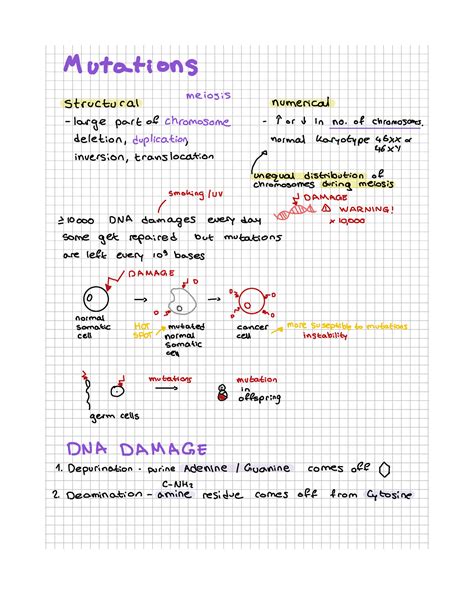 Mutations
meiosis
Structural
- large part of chromosome
deletion, duplication,
inversion, translocation
numerical
- ↑ or ↓ in no. of chromosoms.
normal Karyotype 46XX or
46XY
unequal distribution of
chromosomes during meiosis
smoking /UV
DAMAGE
⚠ WARNING!
x 10,000
≥10000 DNA damages every day
some get repaired but mutations
are left every 10⁹ bases
DAMAGE
D
D
D
D
D
normal
somatic
cell
HOT
SPOT
mutated
normal
somatic
cell
cancer
cell
more suseptible to mutations
instability
mutations
mutation
in
offspring
germ cells
DNA DAMAGE
1. Depurination - purine Adenine / Guanine comes off
C-NH₂
2. Deamination - amine residue comes off from Cytosine